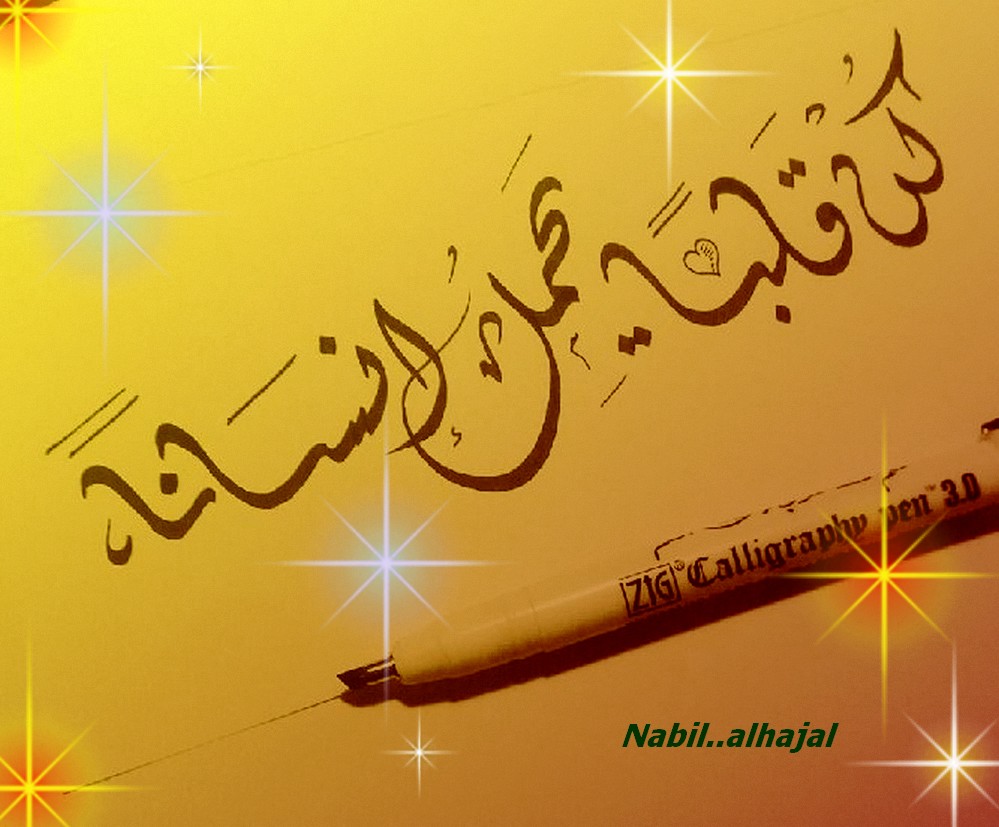 كُن قَلباً يحملُ إنسَاناً
ZIG® Calligraphy pen™ 3.0
Nabil..alhajal